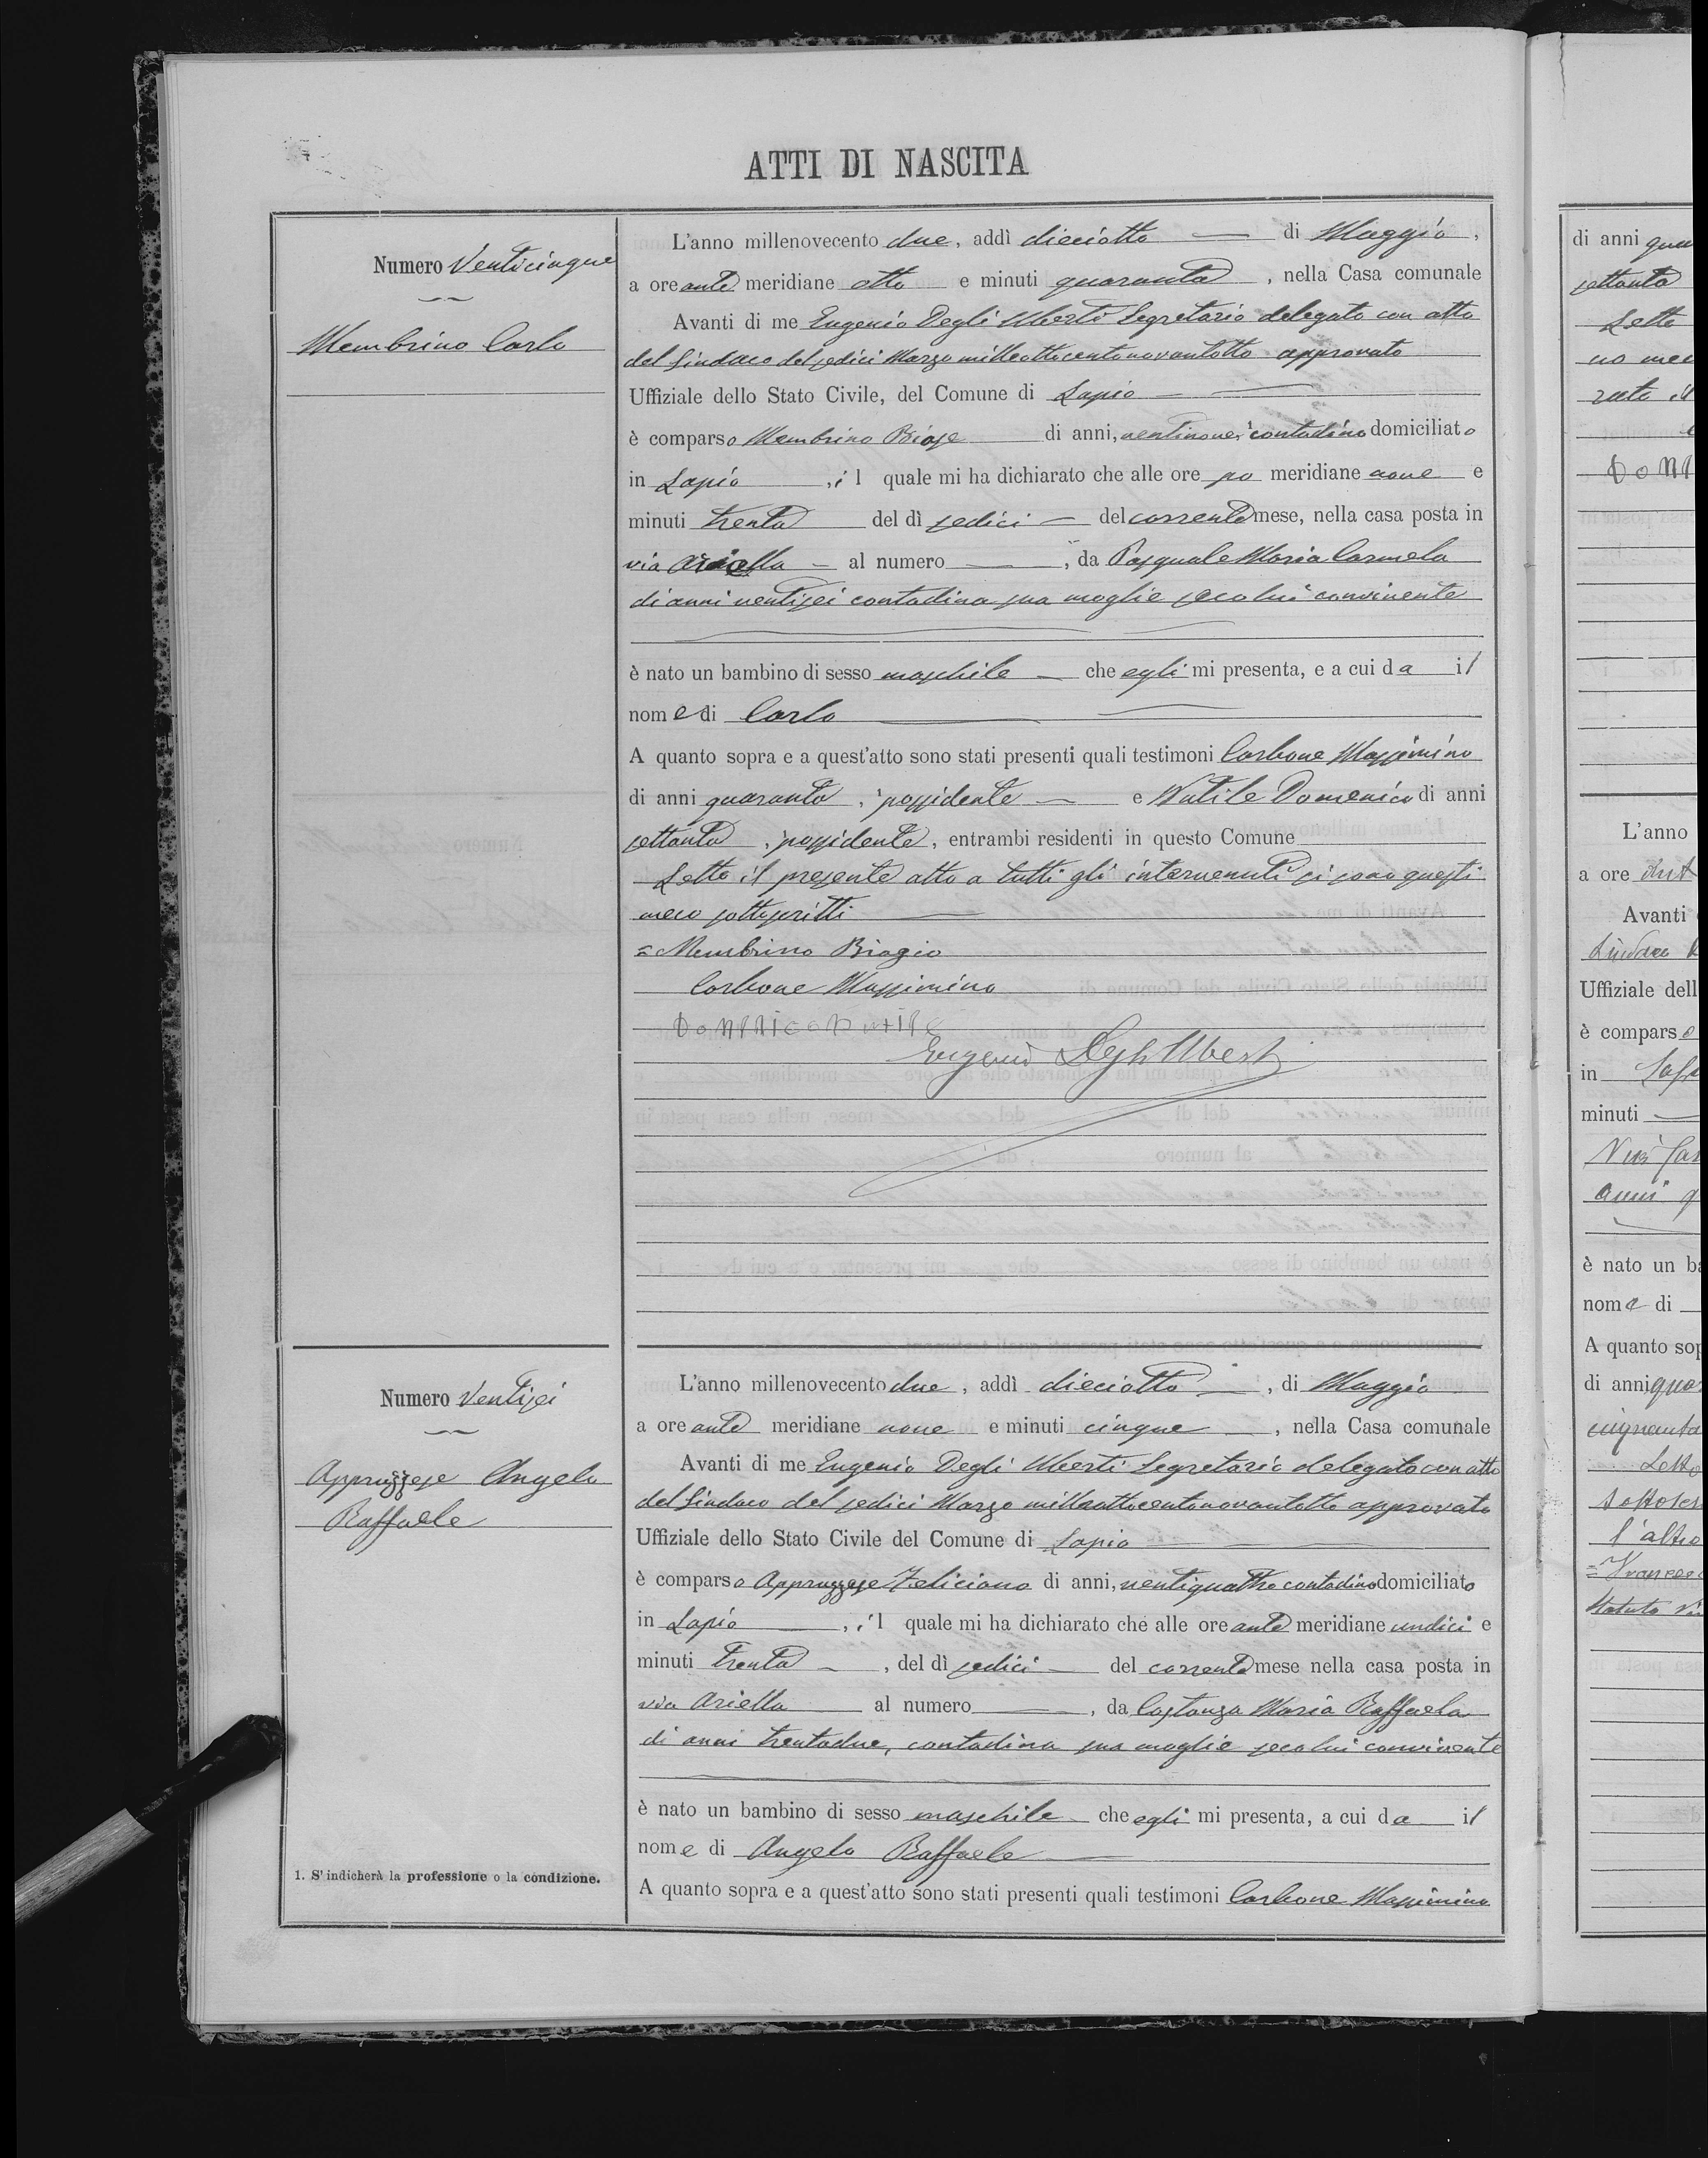 ATTI DI NASCITA
Numero Venticinque
Membrino Carlo
L'anno millenovecento due, addì dieciotto di Maggio,
a ore ante meridiane otto e minuti quaranta, nella Casa comunale
Avanti di me Eugenio Degli Uberti Segretario delegato con atto
del Sindaco del sedici Marzo milleottocentonovantotto approvato
Uffiziale dello Stato Civile, del Comune di Lapio
è comparso Membrino Biase di anni, ventinove, contadino domiciliato
in Lapio, il quale mi ha dichiarato che alle ore po meridiane nove e
minuti trenta del dì sedici del corrente mese, nella casa posta in
via Ariella al numero, da Pasquale Maria Carmela
di anni ventisei contadina sua moglie seco lui convivente
è nato un bambino di sesso maschile che egli mi presenta, e a cui da il
nome di Carlo
A quanto sopra e a quest'atto sono stati presenti quali testimoni Carbone Massimino
di anni quaranta, possidente e Nutile Domenico di anni
settanta, possidente, entrambi residenti in questo Comune
Letto il presente atto a tutti gli intervenuti si sono questi
meco sottoscritti
= Membrino Biagio
Carbone Massimino
Eugenio Degli Uberti
Numero Ventisei
Appruzzese Angelo
Raffaele
L'anno millenovecento due, addì dieciotto, di Maggio
a ore ante meridiane nove e minuti cinque, nella Casa comunale
Avanti di me Eugenio Degli Uberti Segretario delegato con atto
del Sindaco del sedici Marzo milleottocentonovantotto approvato
Uffiziale dello Stato Civile del Comune di Lapio
è comparso Appruzzese Feliciano di anni, ventiquattro contadino domiciliato
in Lapio, il quale mi ha dichiarato che alle ore ante meridiane undici e
minuti trenta, del dì sedici del corrente mese nella casa posta in
via Ariella al numero, da Costanza Maria Raffaela
di anni trentadue, contadina sua moglie seco lui convivente
è nato un bambino di sesso maschile che egli mi presenta, a cui da il
nome di Angelo Raffaele
A quanto sopra e a quest'atto sono stati presenti quali testimoni Carbone Massimino
1. S'indicherà la professione o la condizione.
di anni
settanta
Letto
L'anno
a ore
Avanti
Sindaco
Uffiziale dell
è comparso
in
minuti
anni
è nato un
nome di
A quanto
di anni
cinquanta
Letto
l'altro